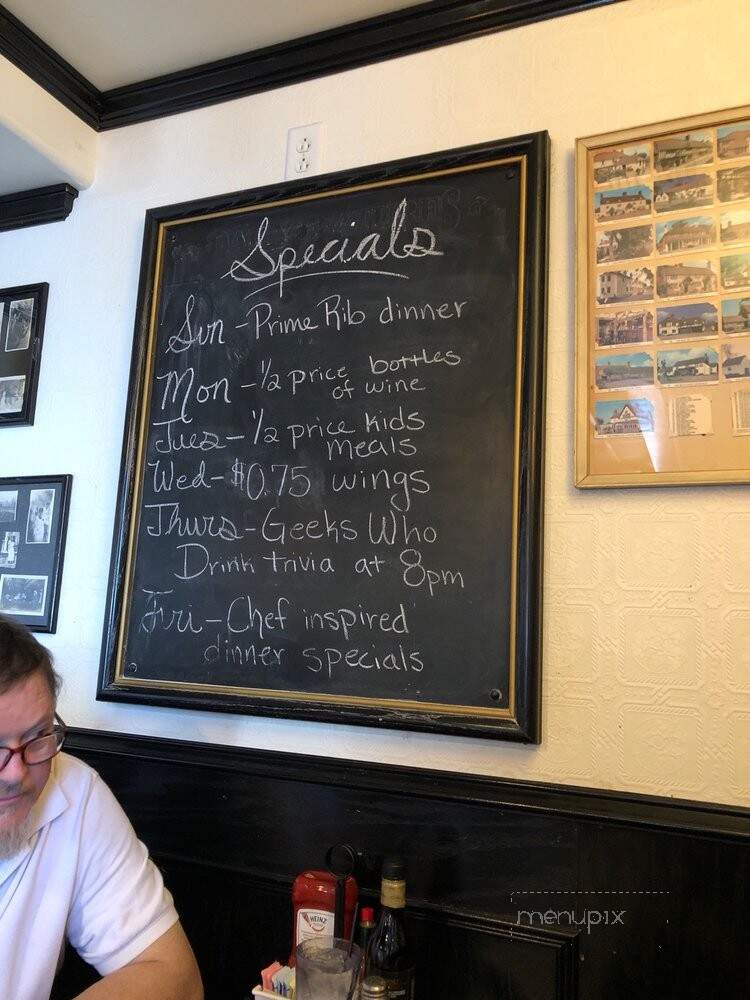 Specials
Sun - Prime Rib dinner
Mon - 1/2 price bottles
of wine
Tues - 1/2 price kids
meals
Wed - $0.75 wings
Thurs - Geeks Who
Drink trivia at 8pm
Fri - Chef inspired
dinner specials
HEINZ
menupix